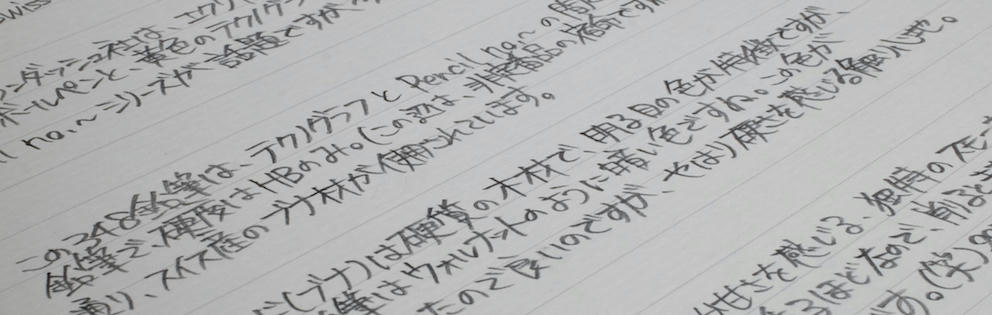 swiss
ンダッシュ社は、エクリ
ボールペンと、黄色のテクノグラ
l no.〜シリーズが話題ですが
この248鉛筆は、テクノグラフとPencil no.〜の
鉛筆で、硬度はHBのみ。(この辺は、非売品の
通り、スイス産のブナ材が使われています。
(ブナ)は硬質の木材で、明る目の色が特徴ですが、
筆はウォルナットのように暗い色ですね。この色が
たので良いのですが、やはり硬さを感じる削り心地。
甘さを感じる、独特の
るほどなので、削ると
す。(笑)